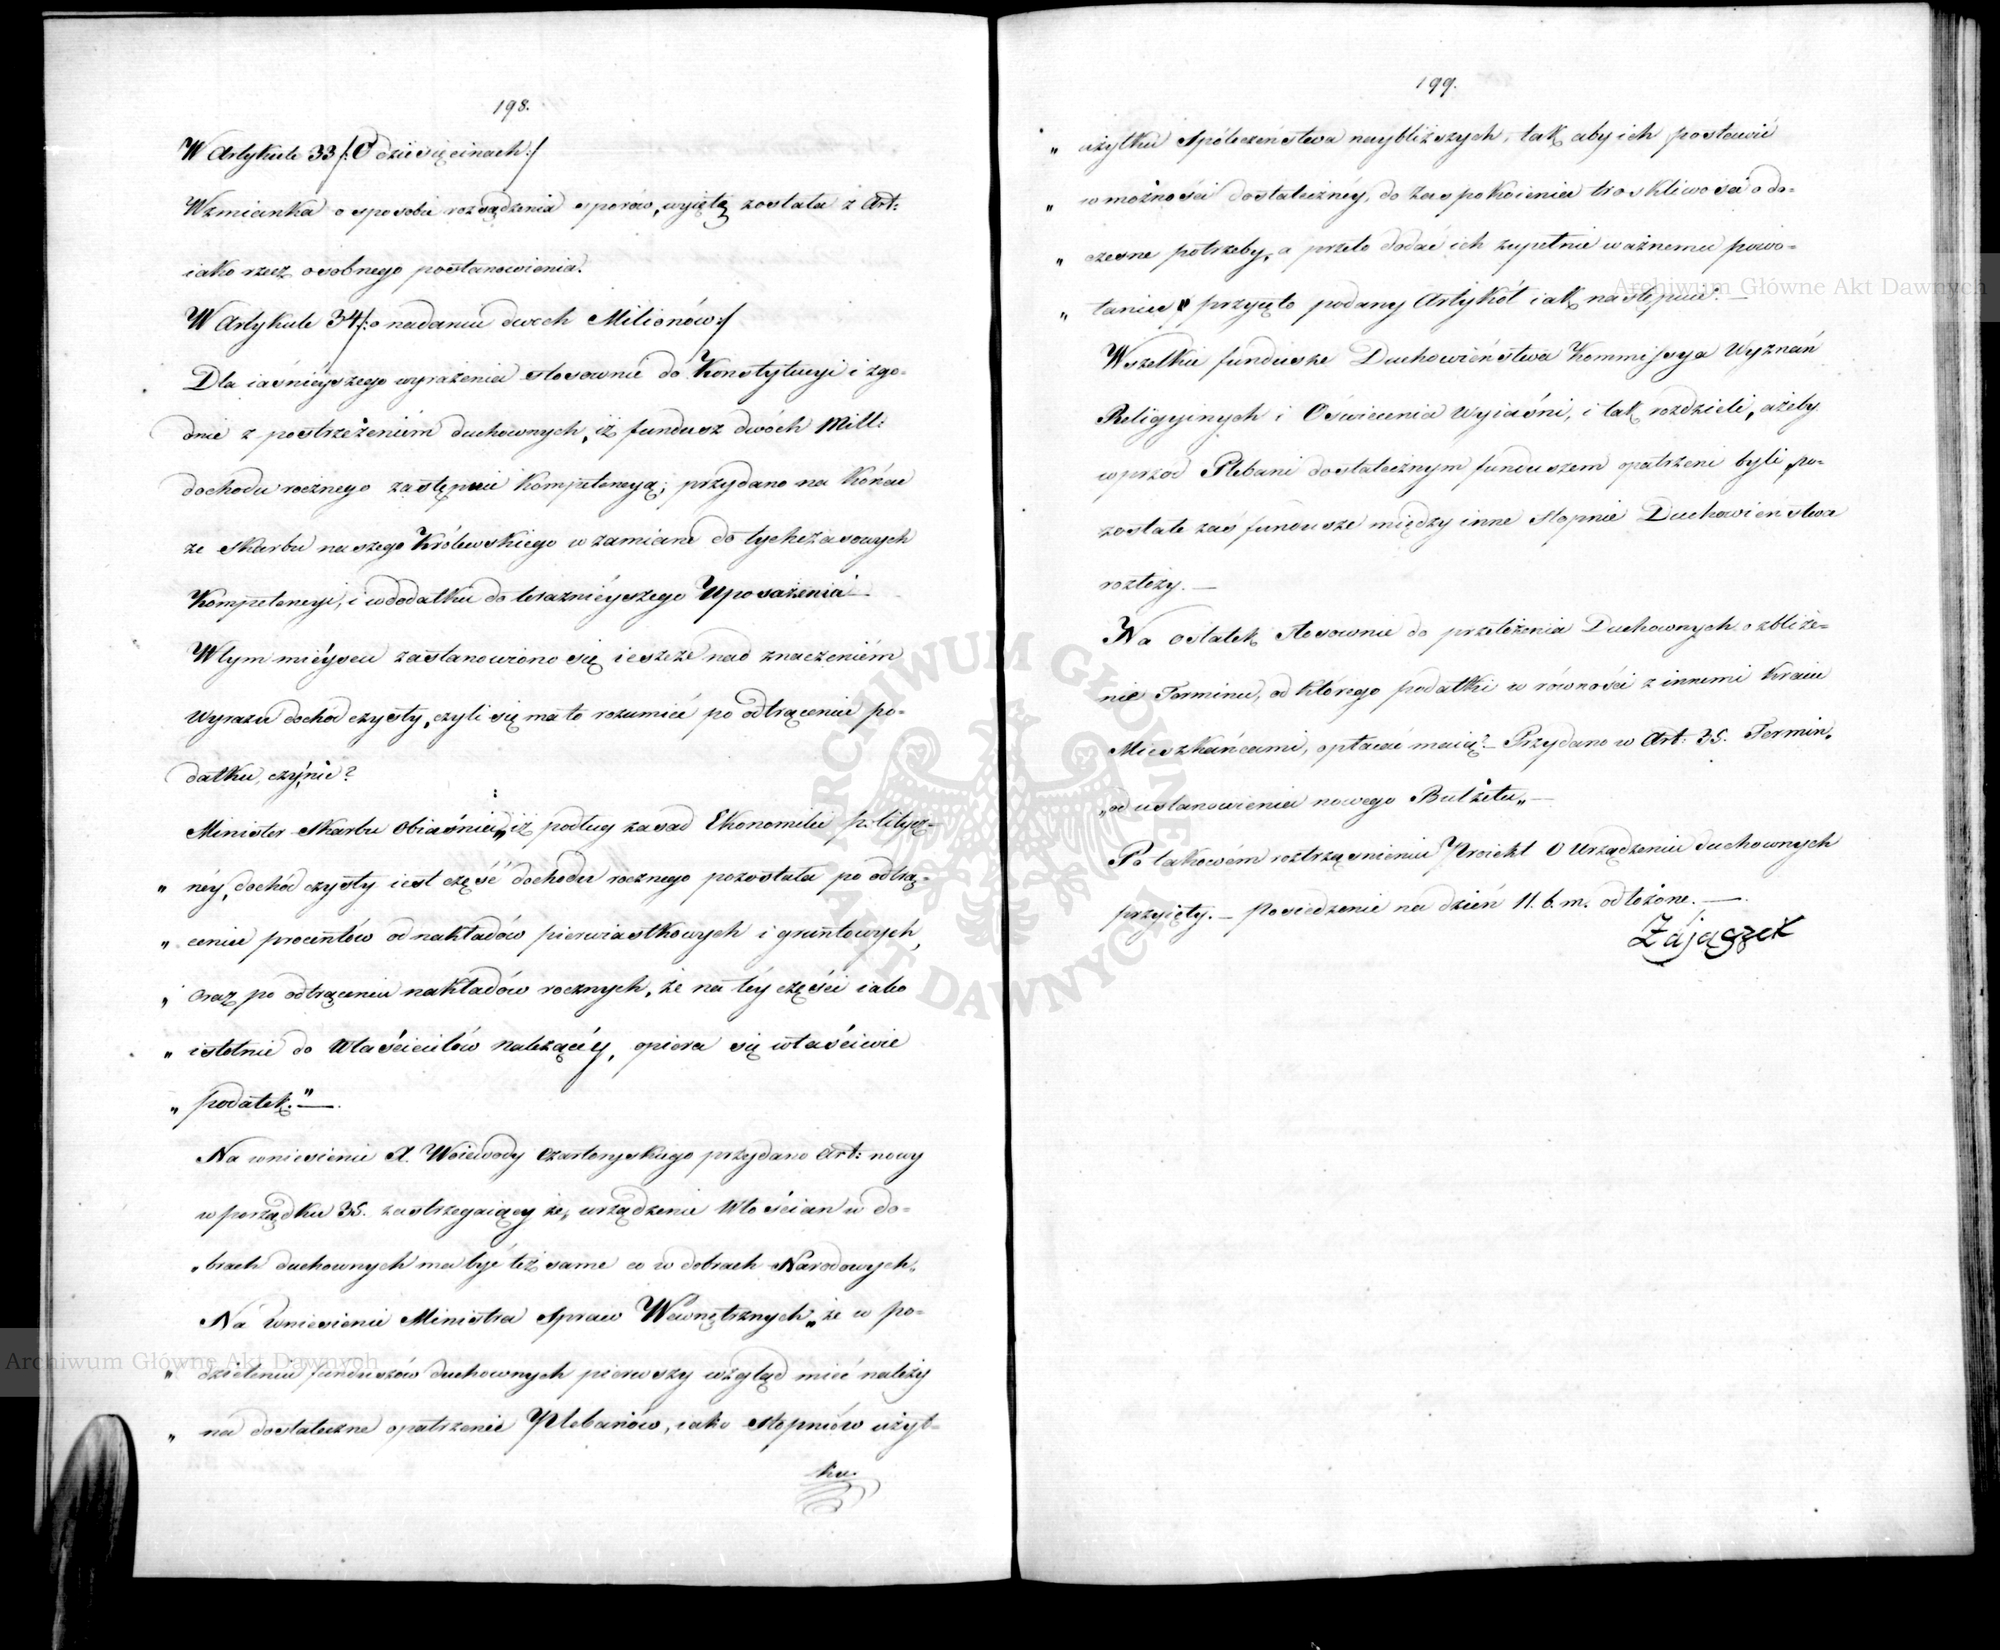 198.
W Artykule 33 /: O dziesięcinach :/
Wzmianka o sposobie rozsądzenia sporów, wyjętą została z Art:
iako rzecz osobnego postanowienia.
W Artykule 34 /: o nadaniu dwóch Milionów :/
Dla iaśnieyszego wyrażenia stosownie do Konstytucyi i zgo-
dnie z postrzeżeniém duchownych, iż fundusz dwóch Mill:
dochodu rocznego zastępuie Kompetencyą; przydano na Końcu
ze Skarbu naszego Królewskiego w zamianę dotychczasowych
Kompetencyi, i w dodatku do teraznieyszego Uposażenia —
W tym mieyscu zastanowiono się ieszcze nad znaczeniém
wyrazu dochod czysty, czyli się ma to rozumieć po odtrąceniu po-
datku, czy nie?
Minister Skarbu obiaśnia, „iż podług zasad Ekonomiki politycz-
„ néy, dochód czysty iest część dochodu rocznego pozostała po odtrą-
„ ceniu procentów od nakładów pierwiastkowych i gruntowych,
„ oraz po odtrąceniu nakładów rocznych, że na téy części iako
„ istotnie do Właścicielów należącéy, opiera się właściwie
„ podatek." —
Na wniesienie X. Woiewody Czartoryskiego przydano Art: nowy
w porządku 35. zastrzegaiący że, urządzenie Włościan w do-
„brach duchownych ma być też same co w dobrach Narodowych.
Na wniesienie Ministra Spraw Wewnętrznych „że w po-
„ dzieleniu funduszów duchownych pierwszy wzgląd mieć należy
„ na dostateczne opatrzenie Plebanów, iako stopniów użyt-
ku.
199.
„ użytku Społeczeństwa naybliższych, tak aby ich postawić
„ w możności dostateczney, do zaspokoienia troskliwości o do-
„ czesne potrzeby, a przeto dodać ich zupełnie ważnemu powo-
„ łaniu" przyięto podany Artykół iak następuie: —
Wszelkie fundusze Duchowieństwa Kommissya Wyznań
Religyinych i Oświecenia wyiaśni, i tak rozdzieli, ażeby
wprzod Plebani dostatecznym funduszem opatrzeni byli, po-
zostałe zaś fundusze między inne stopnie Duchowieństwa
rozłoży. —
Na ostatek stosownie do przełożenia Duchownych o zbliże-
nie Terminu, od którego podatki w równości z innemi Kraiu
Mieszkańcami, opłacać maią? — Przydano w Art: 35. Termin,
„od ustanowienia nowego Budżetu„ —
Po takowém roztrząśnieniu Proiekt O Urządzeniu duchownych
przyięty. — Posiedzenie na dzień 11. b. m. odłożone. —
Zajączek
Archiwum Główne Akt Dawnych
Archiwum Główne Akt Dawnych
ARCHIWUM GŁÓWNE AKT DAWNYCH